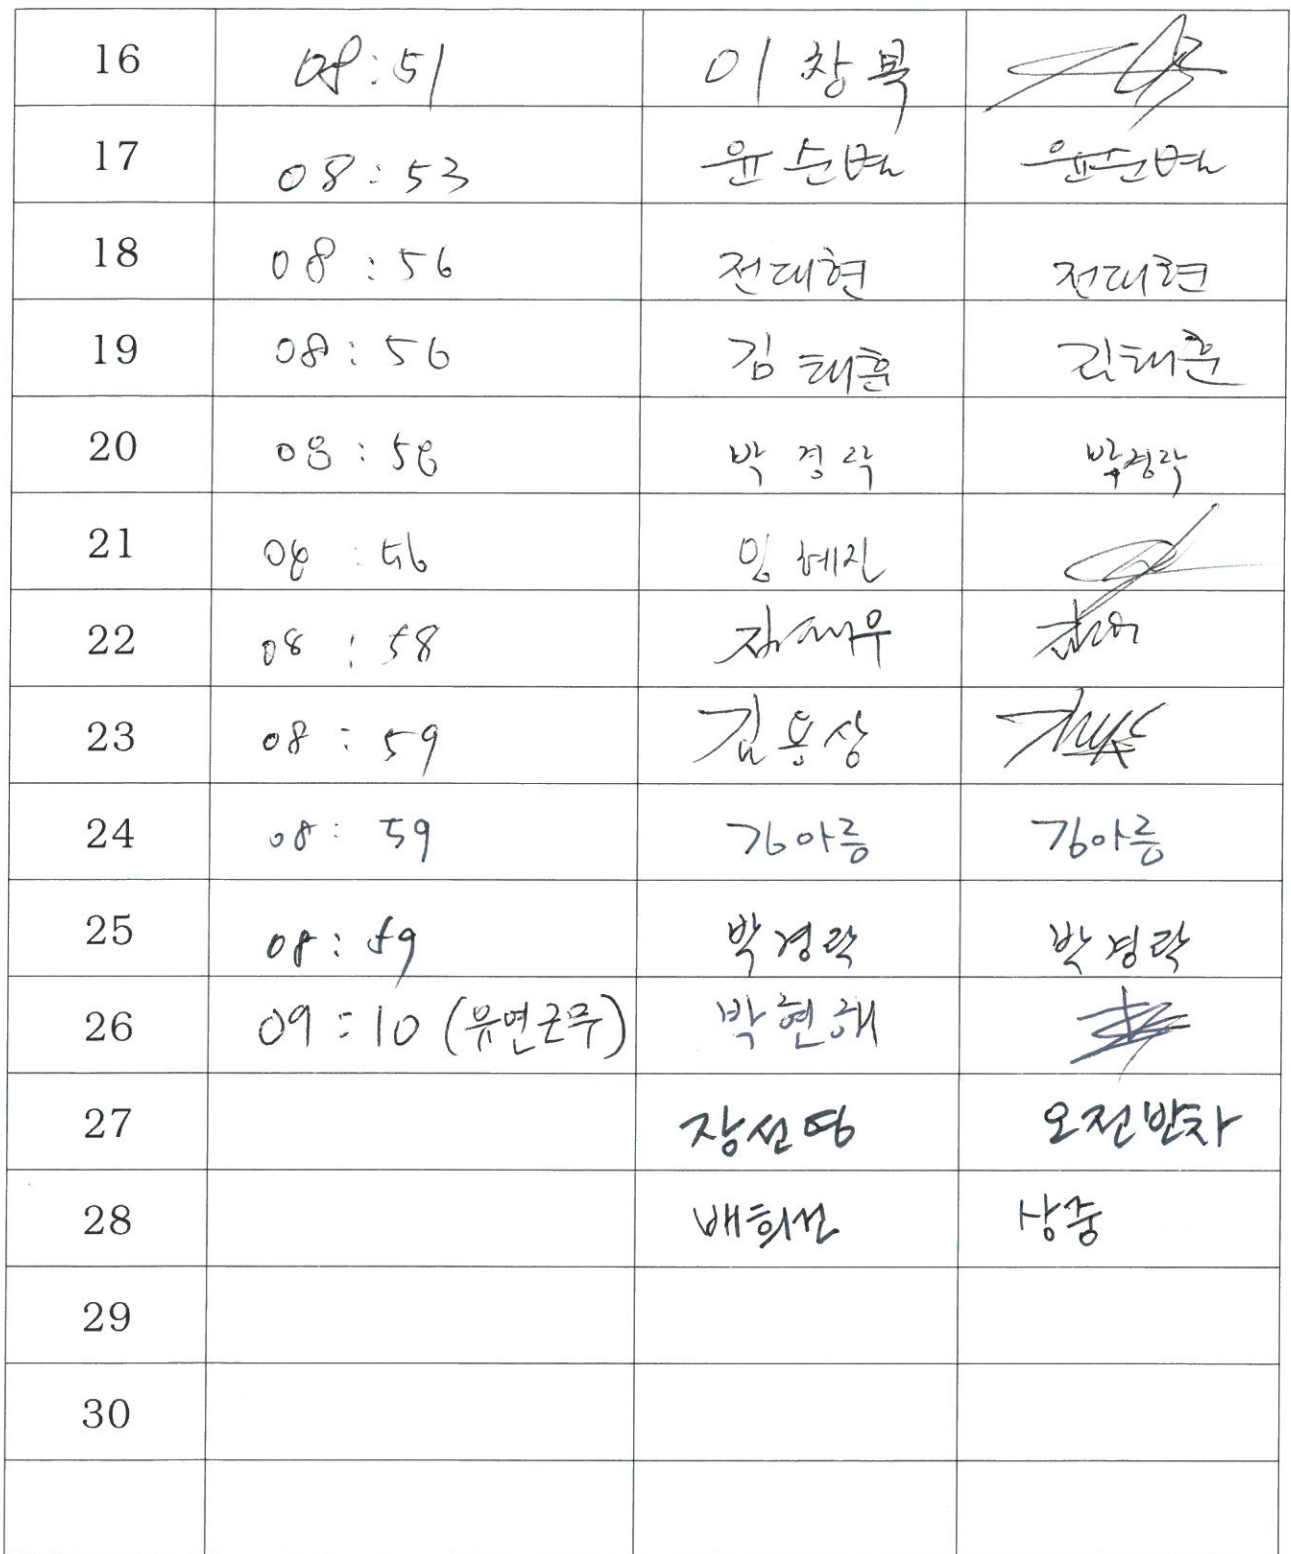 16 08:51 이창복
17 08:53 윤순범 윤순범
18 08:56 전대현 전대현
19 08:56 김태훈 김태훈
20 08:58 박경락 박경락
21 08:56 임혜진
22 08:58
23 08:59 김용상
24 08:59 김아름 김아름
25 08:59 박경락 박경락
26 09:10 (유연근무) 박현해
27 장선영 오전반차
28 배희선 상중
29
30